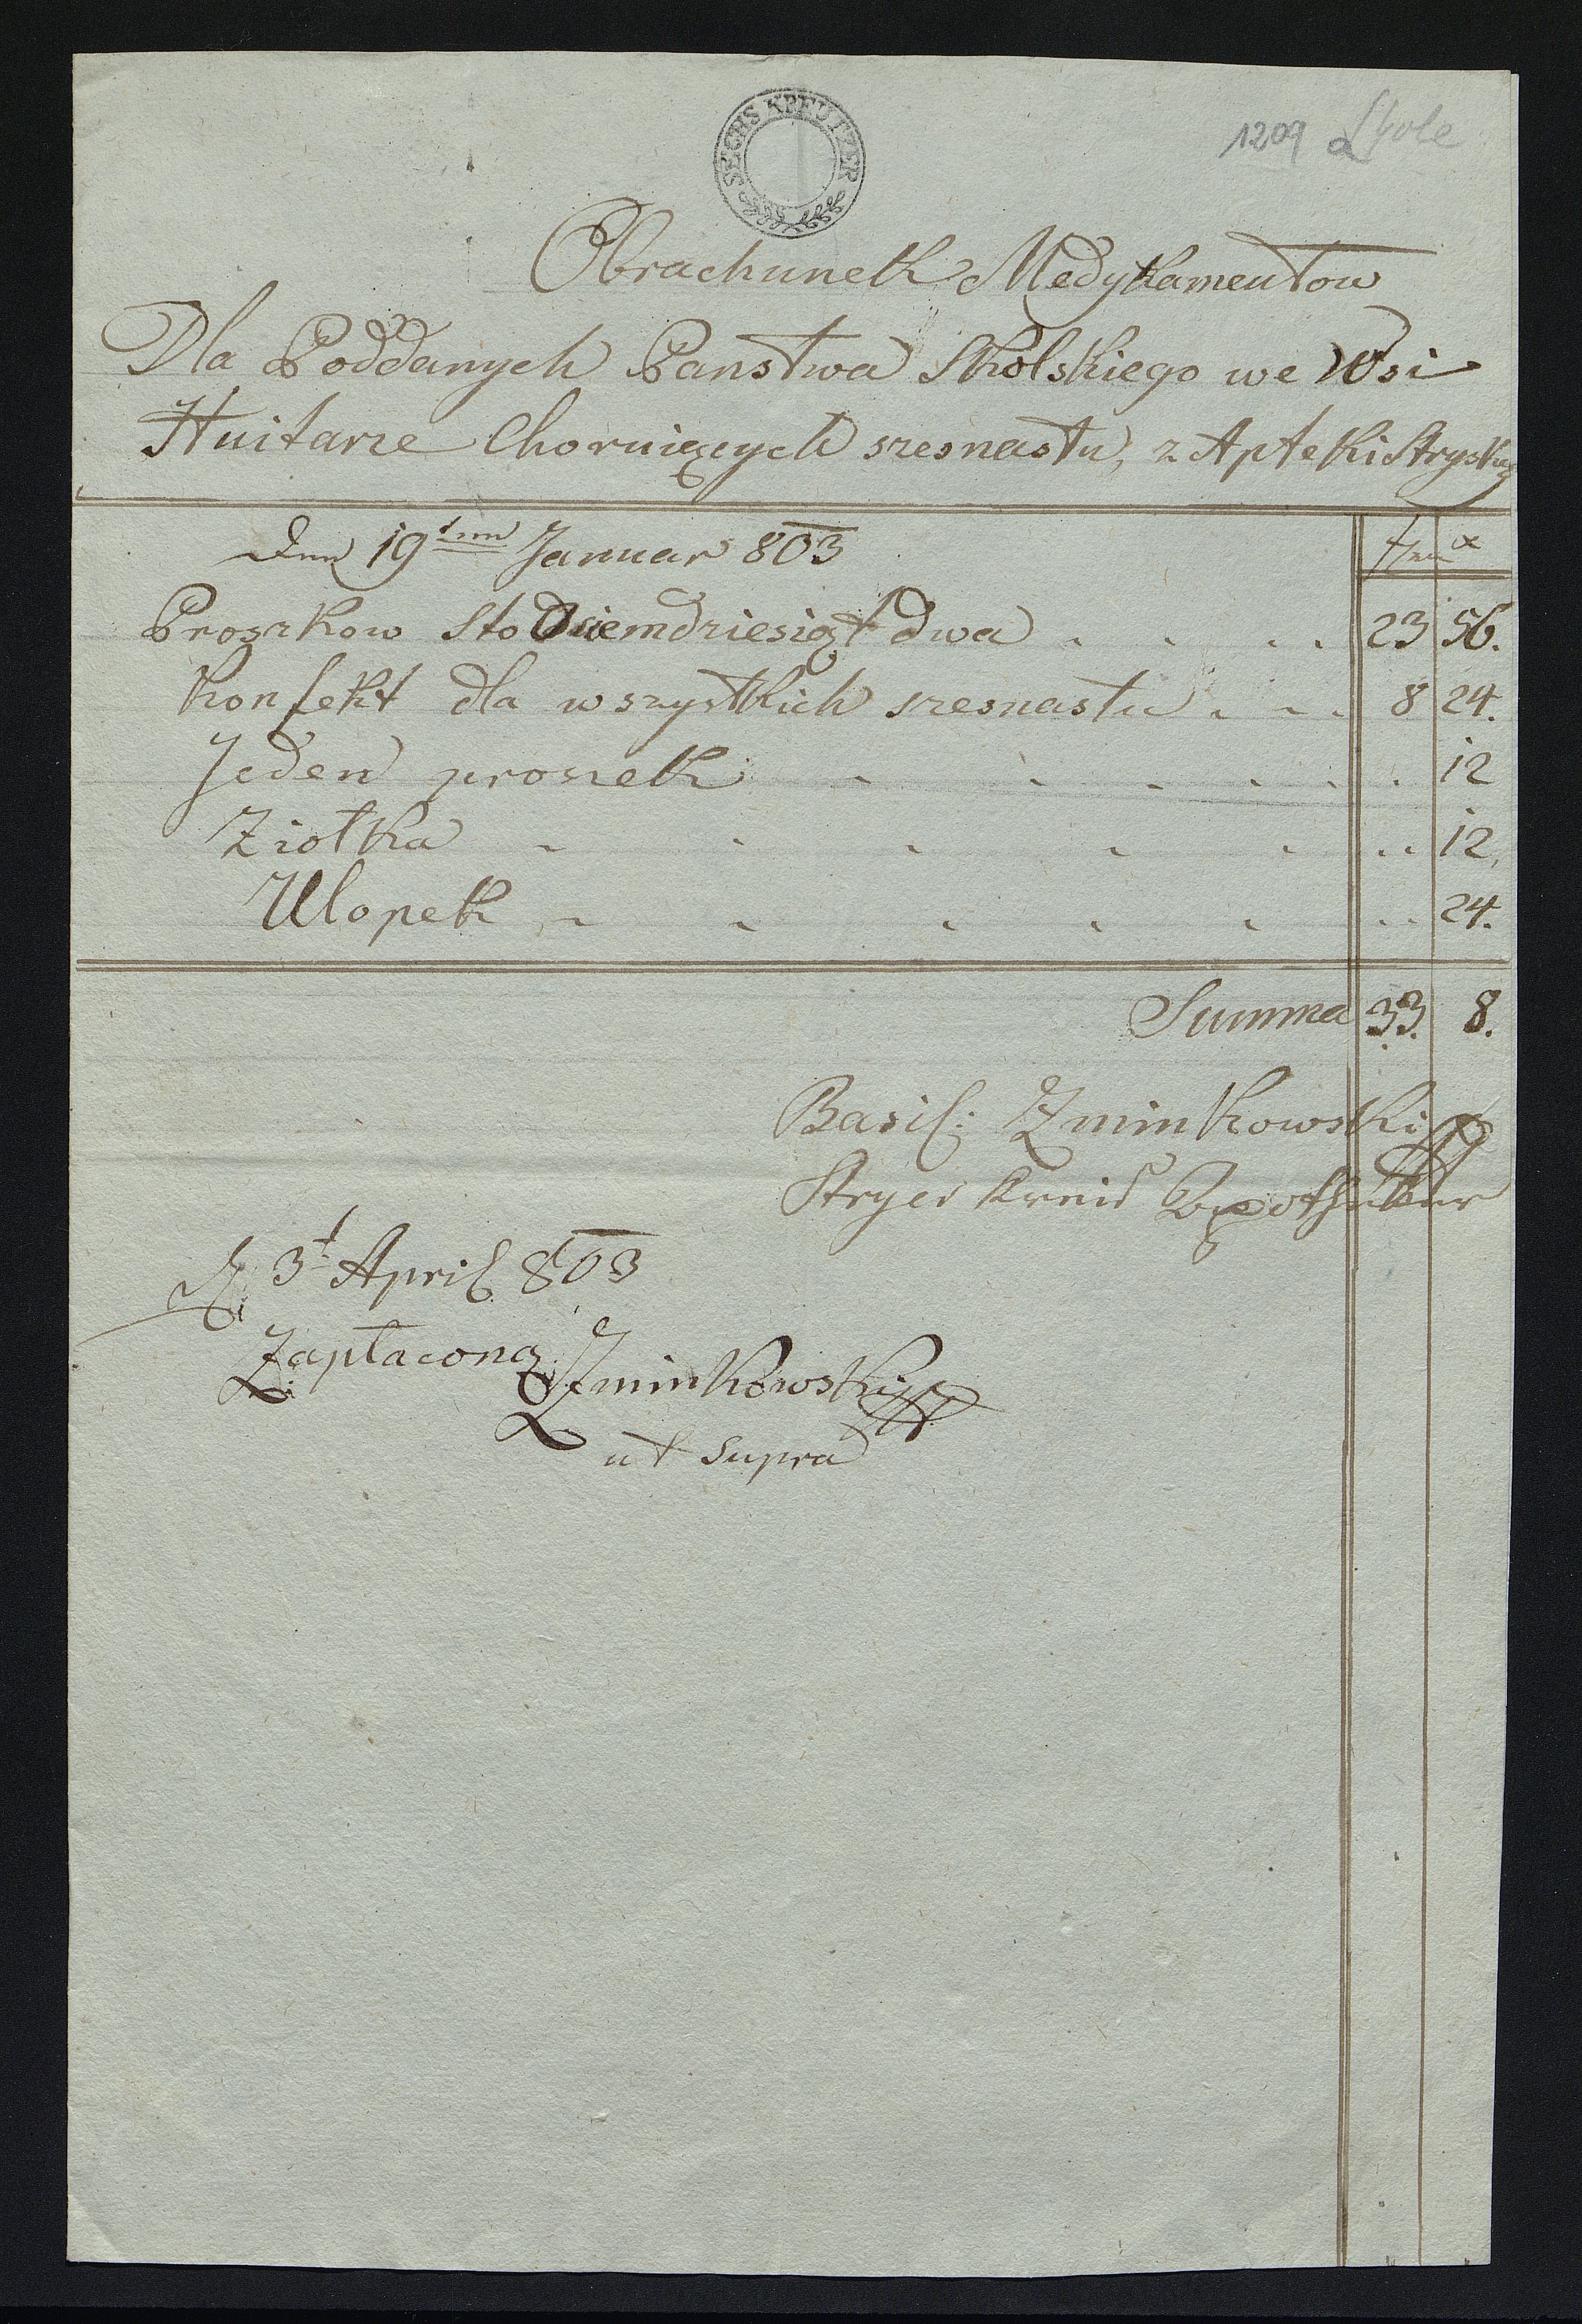 SECHS KREUTZER
1209 Skole
Obrachunek Medykamentow
Dla Poddanych Panstwa Skolskiego we Wsi
Huitarze Choruiących szesnastu, z Apteki Stryskiey
Den 19ten Januar 803
x
Proszkow Sto Osiemdziesiąt dwa . . . . 23 56.
Konfekt dla wszystkich szesnastu . . . 8 24.
Jeden proszek . . . . . . 12
Ziołka . . . . . . . 12,
Ulopek . . . . . . . 24.
Summa 33. 8.
Basil: Zminkowski
Stryer Kreis Apotheker
d. 3t April 803
Zapłacono Zminkowski
ut supra